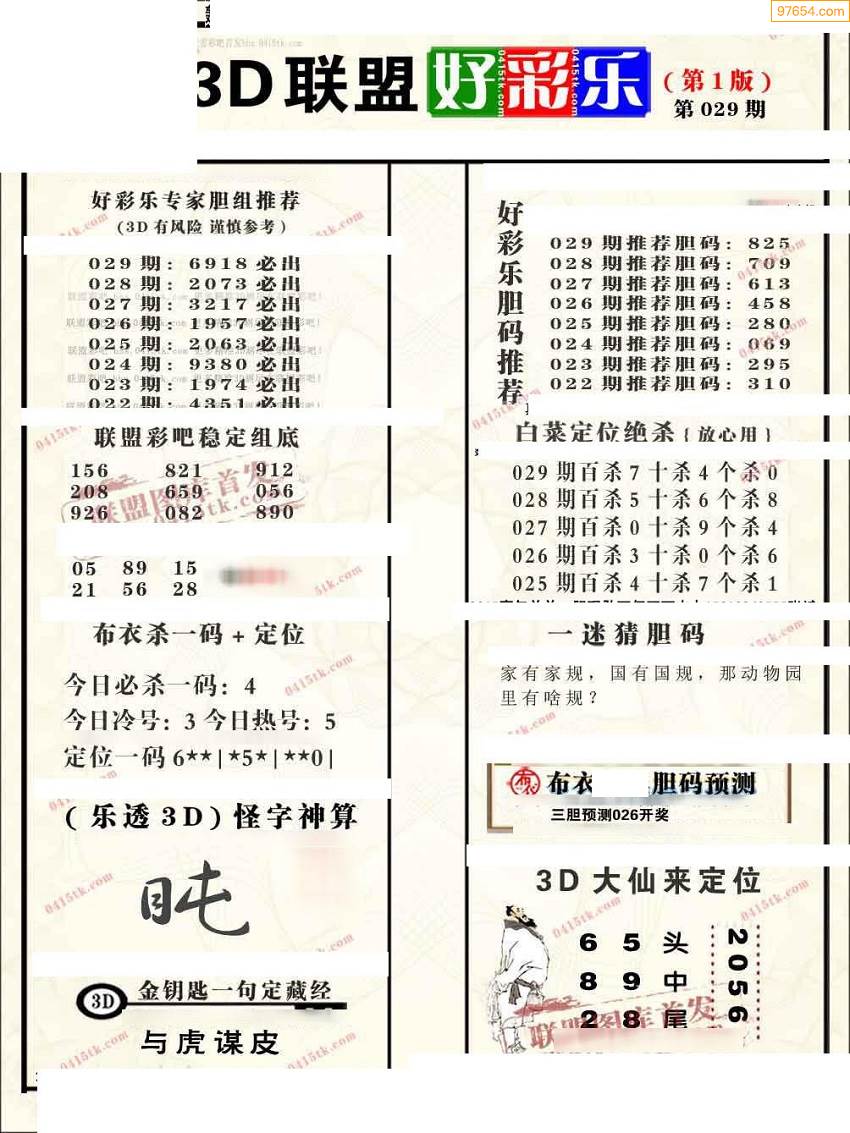 97654.com
3D联盟好彩乐
(第1版)
第029期
好彩乐专家胆组推荐
(3D有风险 谨慎参考)
029期：6918必出
028期：2073必出
027期：3217必出
026期：1957必出
025期：2063必出
024期：9380必出
023期：1974必出
022期：4351必出
联盟彩吧稳定组底
156 821 912
208 659 056
926 082 890
联盟图库首发
05 89 15
21 56 28
布衣杀一码+定位
今日必杀一码：4
今日冷号：3 今日热号：5
定位一码6**|*5*|**0|
(乐透3D)怪字神算
3D
金钥匙一句定藏经
与虎谋皮
好彩乐胆码推荐
029期推荐胆码：825
028期推荐胆码：709
027期推荐胆码：613
026期推荐胆码：458
025期推荐胆码：280
024期推荐胆码：069
023期推荐胆码：295
022期推荐胆码：310
白菜定位绝杀{放心用}
029期百杀7十杀4个杀0
028期百杀5十杀6个杀8
027期百杀0十杀9个杀4
026期百杀3十杀0个杀6
025期百杀4十杀7个杀1
一迷猜胆码
家有家规，国有国规，那动物园
里有啥规？
布衣 胆码预测
三胆预测026开奖
3D大仙来定位
6 5 头
8 9 中
2 8 尾
2056
联盟图库首发
0415tk.com